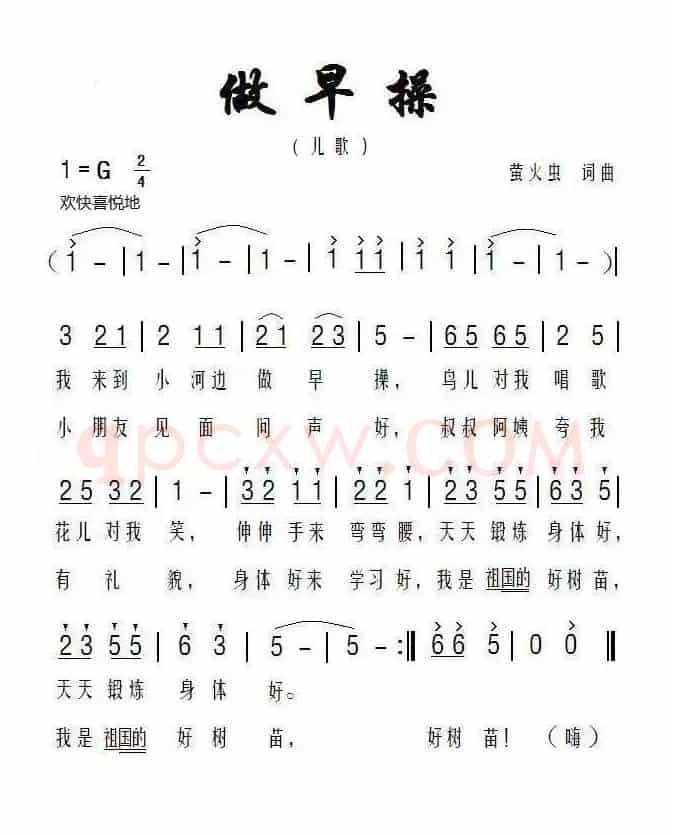 做早操
(儿歌)
1=G 2/4 萤火虫 词曲
欢快喜悦地
(1 - | 1 - | 1 - | 1 - | 1 11 | 1 1 | 1 - | 1 - )|
3 21 | 2 11 | 21 23 | 5 - | 65 65 | 2 5 |
我 来到 小 河边 做 早 操, 鸟儿 对我 唱歌
小 朋友 见 面 问 声 好, 叔叔 阿姨 夸我
25 32 | 1 - | 32 11 | 22 1 | 23 55 | 63 5 |
花儿 对我 笑, 伸伸 手来 弯弯 腰, 天天 锻炼 身体 好,
有 礼 貌, 身体 好来 学习 好, 我是 祖国的 好树 苗,
23 55 | 6 3 | 5 - | 5 - :|| 66 5 | 0 0 ||
天天 锻炼 身体 好。
我是 祖国的 好树 苗, 好树 苗! (嗨)
qpcxw.COM